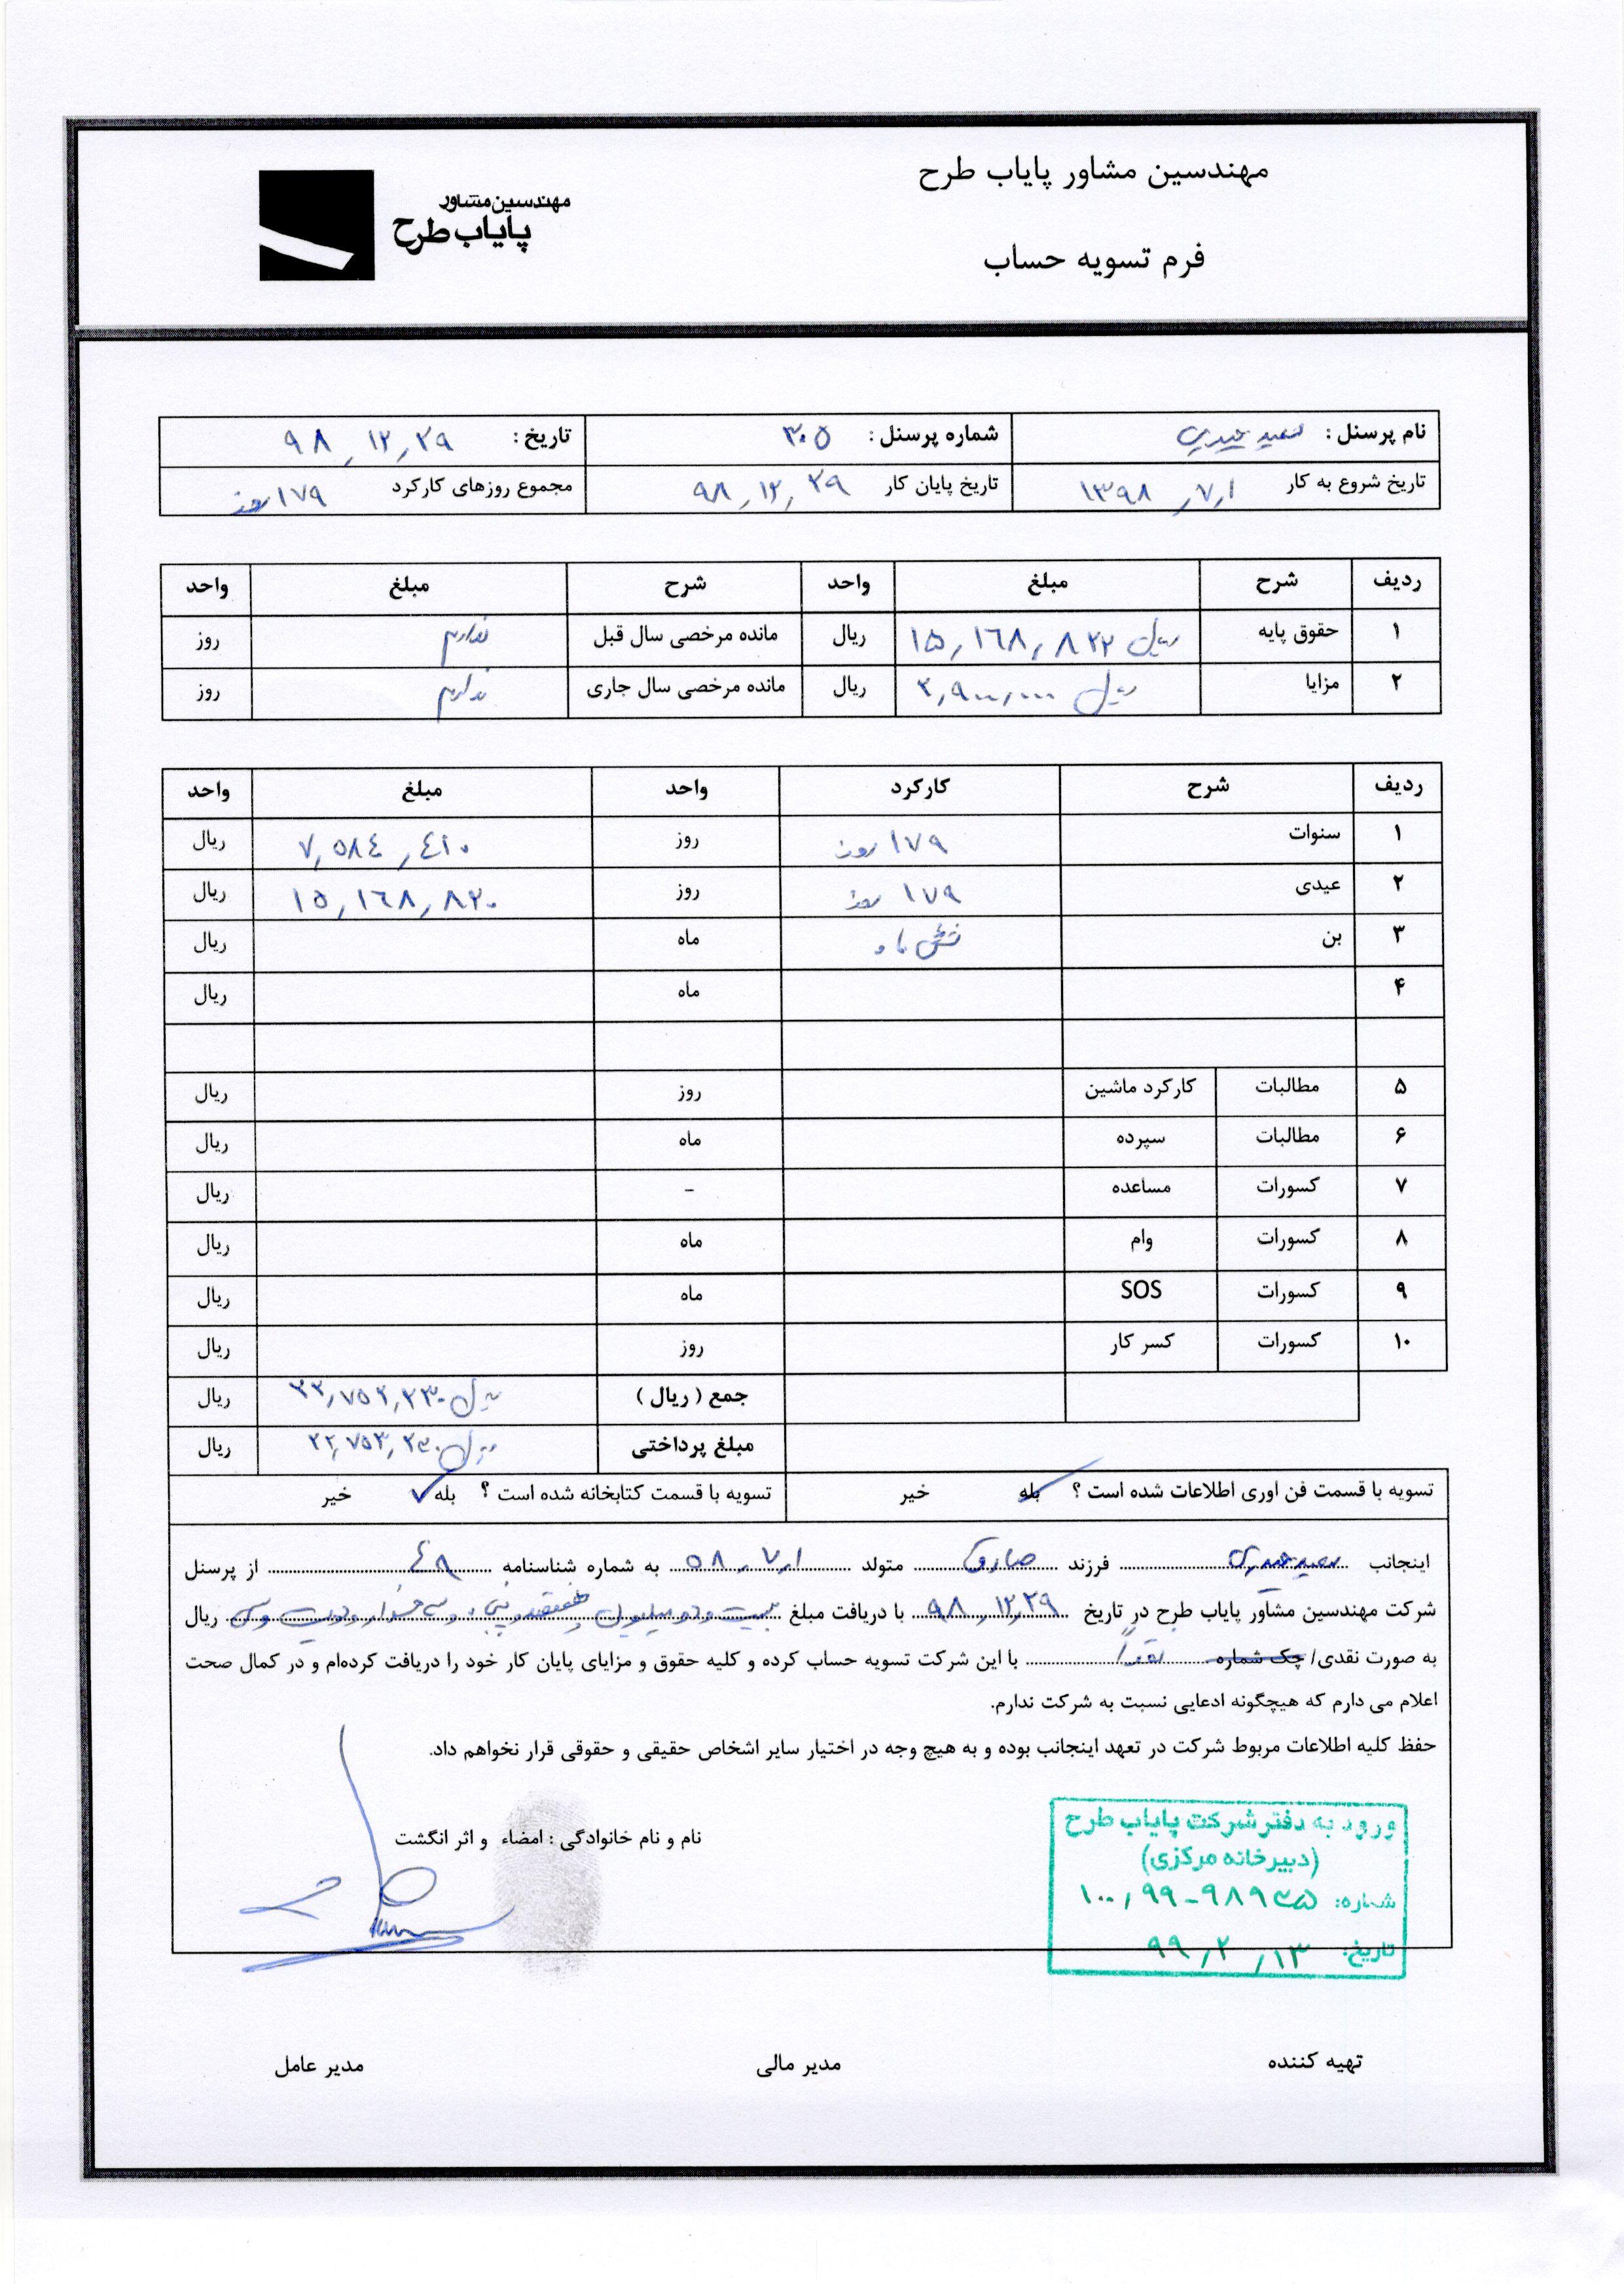 مهندسین مشاور پایاب طرح
مهندسین مشاور
پایاب طرح
فرم تسویه حساب
نام پرسنل : سعید حیدری شماره پرسنل : ۳۰۵ تاریخ : ۹۸/۱۲/۲۹
تاریخ شروع به کار ۱۳۹۸/۷/۱ تاریخ پایان کار ۹۸/۱۲/۲۹ مجموع روزهای کارکرد ۱۷۹ روز
ردیف شرح مبلغ واحد شرح مبلغ واحد
۱ حقوق پایه ۱۵,۱۶۸,۸۲۲ ریال ریال مانده مرخصی سال قبل ندارم روز
۲ مزایا ۲,۹۰۰,۰۰۰ ریال ریال مانده مرخصی سال جاری ندارم روز
ردیف شرح کارکرد واحد مبلغ واحد
۱ سنوات ۱۷۹ روز روز ۷,۵۸٤,٤۱۰ ریال
۲ عیدی ۱۷۹ روز روز ۱۵,۱٦۸,۸۲۰ ریال
۳ بن شش ماه ماه ریال
۴ ماه ریال
۵ مطالبات کارکرد ماشین روز ریال
۶ مطالبات سپرده ماه ریال
۷ کسورات مساعده - ریال
۸ کسورات وام ماه ریال
۹ کسورات SOS ماه ریال
۱۰ کسورات کسر کار روز ریال
جمع ( ریال ) ۲۲,۷۵۳,۲۳۰ ریال ریال
مبلغ پرداختی ۲۲,۷۵۳,۲۳۰ ریال ریال
تسویه با قسمت فن اوری اطلاعات شده است ؟ بله خیر تسویه با قسمت کتابخانه شده است ؟ بله ✓ خیر
اینجانب سعید حیدری فرزند صادق متولد ۵۸/۷/۱ به شماره شناسنامه ٤۸ از پرسنل
شرکت مهندسین مشاور پایاب طرح در تاریخ ۹۸/۱۲/۲۹ با دریافت مبلغ بیست و دو میلیون و هفتصد و پنجاه و سه هزار و دویست و سی ریال
به صورت نقدی/ چک شماره نقداً با این شرکت تسویه حساب کرده و کلیه حقوق و مزایای پایان کار خود را دریافت کرده‌ام و در کمال صحت
اعلام می دارم که هیچگونه ادعایی نسبت به شرکت ندارم.
حفظ کلیه اطلاعات مربوط شرکت در تعهد اینجانب بوده و به هیچ وجه در اختیار سایر اشخاص حقیقی و حقوقی قرار نخواهم داد.
نام و نام خانوادگی : امضاء و اثر انگشت
ورود به دفتر شرکت پایاب طرح
(دبیرخانه مرکزی)
شماره: ۱۰۰,۹۹-۹۸۹۳۵
تاریخ: ۹۹/۲/۱۳
تهیه کننده مدیر مالی مدیر عامل